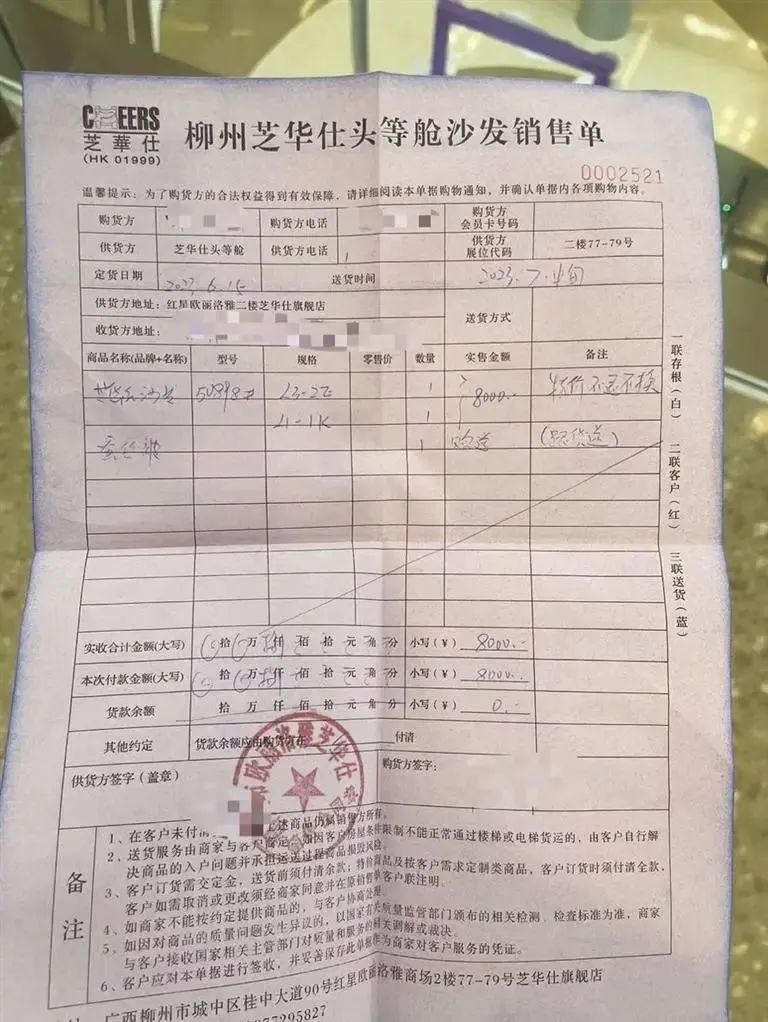 CHEERS
芝華仕
(HK 01999)
柳州芝华仕头等舱沙发销售单
0002521
温馨提示：为了购货方的合法权益得到有效保障，请详细阅读本单据购物通知，并确认单据内各项购物内容。
购货方 购货方电话 购货方会员卡号码
供货方 芝华仕头等舱 供货方电话 供货方展位代码 二楼77-79号
定货日期 2023.6.15 送货时间 2023.7.中旬
供货方地址：红星欧丽洛雅二楼芝华仕旗舰店 送货方式
收货方地址：
商品名称(品牌+名称) 型号 规格 零售价 数量 实售金额 备注
芝华仕沙发 50898# 1 8000.- 特价不退不换
1
蚕丝被 1 赠送 (跟货送)
一联存根(白) 二联客户(红) 三联送货(蓝)
实收合计金额(大写) 拾 万 捌仟 佰 拾 元 角 分 小写(￥) 8000.-
本次付款金额(大写) 拾 万 捌仟 佰 拾 元 角 分 小写(￥) 8000.-
货款余额 拾 万 仟 佰 拾 元 角 分 小写(￥) 0.-
其他约定 货款余额应由购货方在 付清
供货方签字(盖章) 购货方签字：
欧丽洛雅芝华仕
备注
1、在客户未付清 上述商品仍属销售方所有。
2、送货服务由商家与客户商定，如因客户房屋条件限制不能正常通过楼梯或电梯货运的，由客自行解
决商品的入户问题并承担运送过程商品损毁风险。
3、客户订货需交定金，送货前须付清余款；特价商品及按客户需求定制类商品，客户订货时须付清全款，
客户如需取消或更改须经商家同意并在原销售单客户联注明。
4、如商家不能按约定提供商品的，与客户协商处理。
5、如因对商品的质量问题发生异议的，以国家有关质量监管部门颁布的相关检测、检查标准为准，商家
与客户接收国家相关主管部门对质量和服务的相关调解或裁决。
6、客户应对本单据进行签收，并妥善保存此单据作为商家对客户服务的凭证。
广西柳州市城中区桂中大道90号红星欧丽洛雅商场2楼77-79号芝华仕旗舰店
77295827